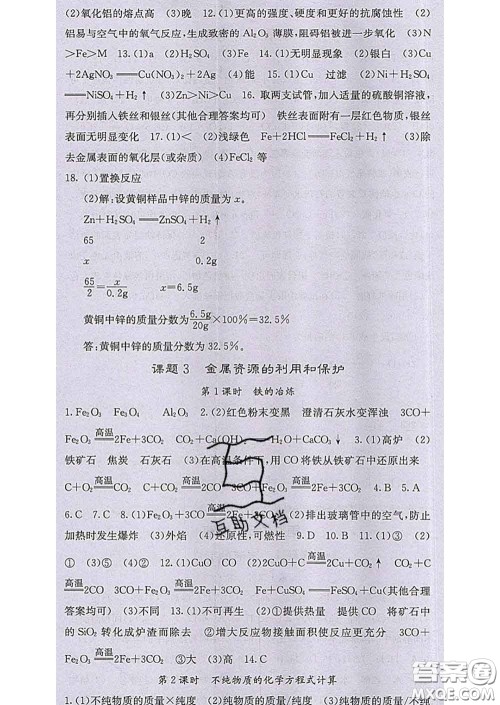 (2)氧化铝的熔点高 (3)晚 12.(1)更高的强度、硬度和更好的抗腐蚀性 (2)
铝易与空气中的氧气反应,生成致密的 Al₂O₃ 薄膜,阻碍铝被进一步氧化 (3)N
>Fe>M 13.(1)a (2)H₂SO₄ (3)Fe 14.(1)无明显现象 (2)银白 (3)Cu
+2AgNO₃══Cu(NO₃)₂+2Ag (4)能 15.(1)Cu 过滤 (2)Ni+H₂SO₄
══NiSO₄+H₂↑ (3)Zn>Ni>Cu 16. 取两支试管,加入适量的硫酸铜溶液,
再分别插入铁丝和银丝(其他合理答案均可) 铁丝表面附有一层红色物质,银丝
表面无明显变化 17.(1)< (2)浅绿色 Fe+2HCl══FeCl₂+H₂↑ (3)除
去金属表面的氧化层(或杂质) (4)FeCl₂ 等
18.(1)置换反应
(2)解:设黄铜样品中锌的质量为 x。
Zn+H₂SO₄══ZnSO₄+H₂↑
65 2
x 0.2g
65/2=x/0.2g x=6.5g
黄铜中锌的质量分数为6.5g/20g×100%=32.5%
答:黄铜中锌的质量分数为 32.5%。
课题 3 金属资源的利用和保护
第 1 课时 铁的冶炼
1.Fe₂O₃ Fe₃O₄ Al₂O₃ 2.(2)红色粉末变黑 澄清石灰水变浑浊 3CO+
Fe₂O₃ 高温══ 2Fe+3CO₂ CO₂+Ca(OH)₂ H₂O+CaCO₃↓ 3.(1)高炉 (2)
铁矿石 焦炭 石灰石 (3)在高温条件下,用 CO 将铁从铁矿石中还原出来
C+O₂ 高温══ CO₂ C+CO₂ 高温══ 2CO 3CO+Fe₂O₃ 高温══ 2Fe+3CO₂ 4.B 5.A
6.C 7.C 8.(1)3CO+Fe₂O₃ 高温══ 2Fe+3CO₂ (2)排出玻璃管中的空气,防止
加热时发生爆炸 (3)外焰 (4)还原性,可燃性 9.D 10.B 11.(1)③ (2)
① (3)⑤ (4)② 12.(1)CuO CO (2)2CuO+C 高温══ 2Cu+CO₂↑ CO₂+C
高温══ 2CO 3CO+Fe₂O₃ 高温══ 2Fe+3CO₂ Fe+CuSO₄══FeSO₄+Cu(其他合理
答案均可) (3)不同 13.(1)不可再生 (2)①提供热量 提供 CO 将矿石中
的 SiO₂ 转化成炉渣而除去 ②增大反应物接触面积使反应更充分 3CO+
Fe₂O₃ 高温══ 2Fe+3CO₂ ③大 (3)高 14.C
第 2 课时 不纯物质的化学方程式计算
1.(1)不纯物质的质量×纯度 (2)纯物质的质量/纯度 (3)纯物质的质量/不纯
互助文档
答案圈
MXQE.COM